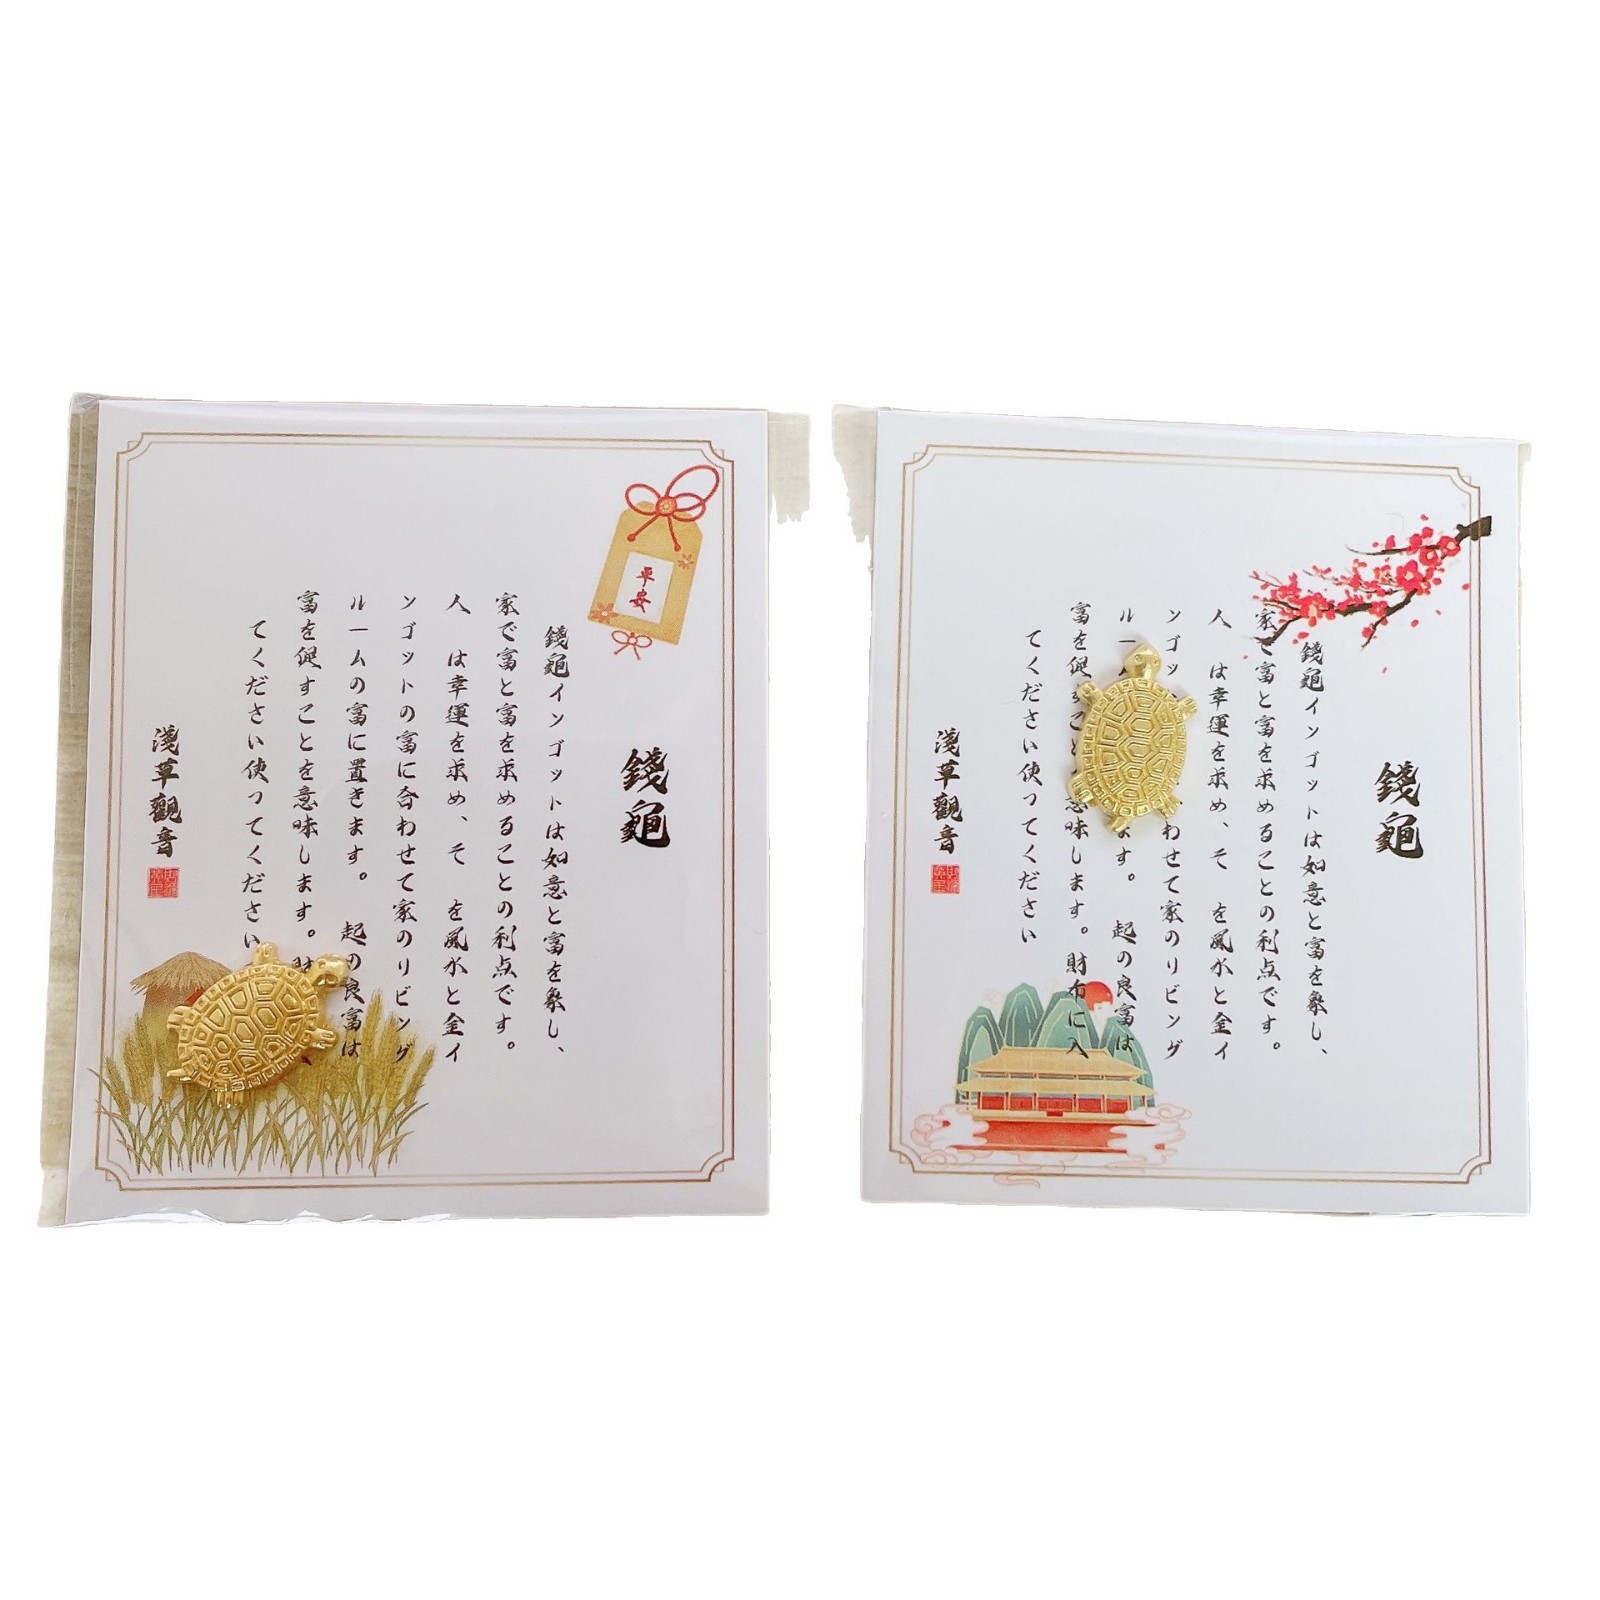 平安
錢龜
錢龜インゴットは如意と富を象し、
家で富と富を求めることの利点です。
人　は幸運を求め、そ　を風水と金イ
ンゴットの富に合わせて家のリビング
ルームの富に置きます。　起の良富は
富を促すことを意味します。財
てくださぃ使ってくださぃ
淺草觀音
錢龜
錢龜インゴットは如意と富を象し、
家で富と富を求めることの利点です。
人　は幸運を求め、そ　を風水と金イ
ンゴッ　わせて家のリビング
ルー　ます。　起の良富は
富を促すこと　意味します。財布に入
てくださぃ使ってくださぃ
淺草觀音